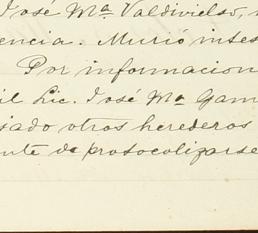 José Mª Valdivielso,
encia. Murió intes
Por informacion
il Lic. José Mª Gam
jado otros herederos
nte de protocolizarse